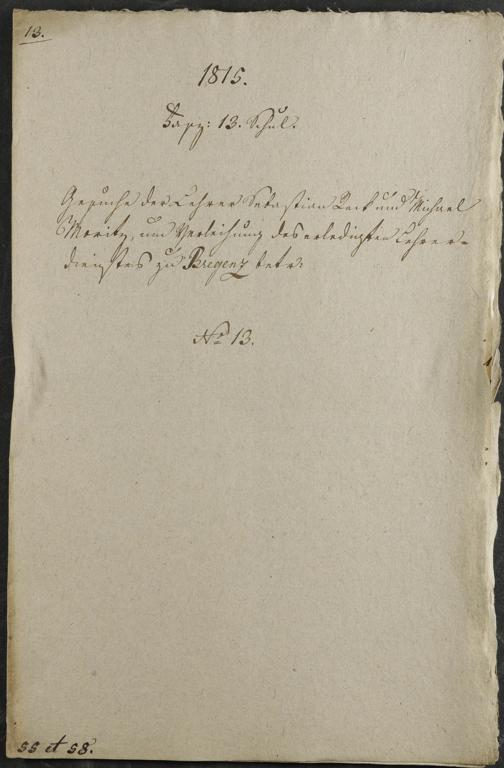 13.
1815.
Fasz: 13. Schul.
Gesuche der Lehrer Sebastian und Michael
Moritz, um Verleihung des erledigten Lehrer-
dienstes zu Bregenz betr:
No 13.
55 et 58.